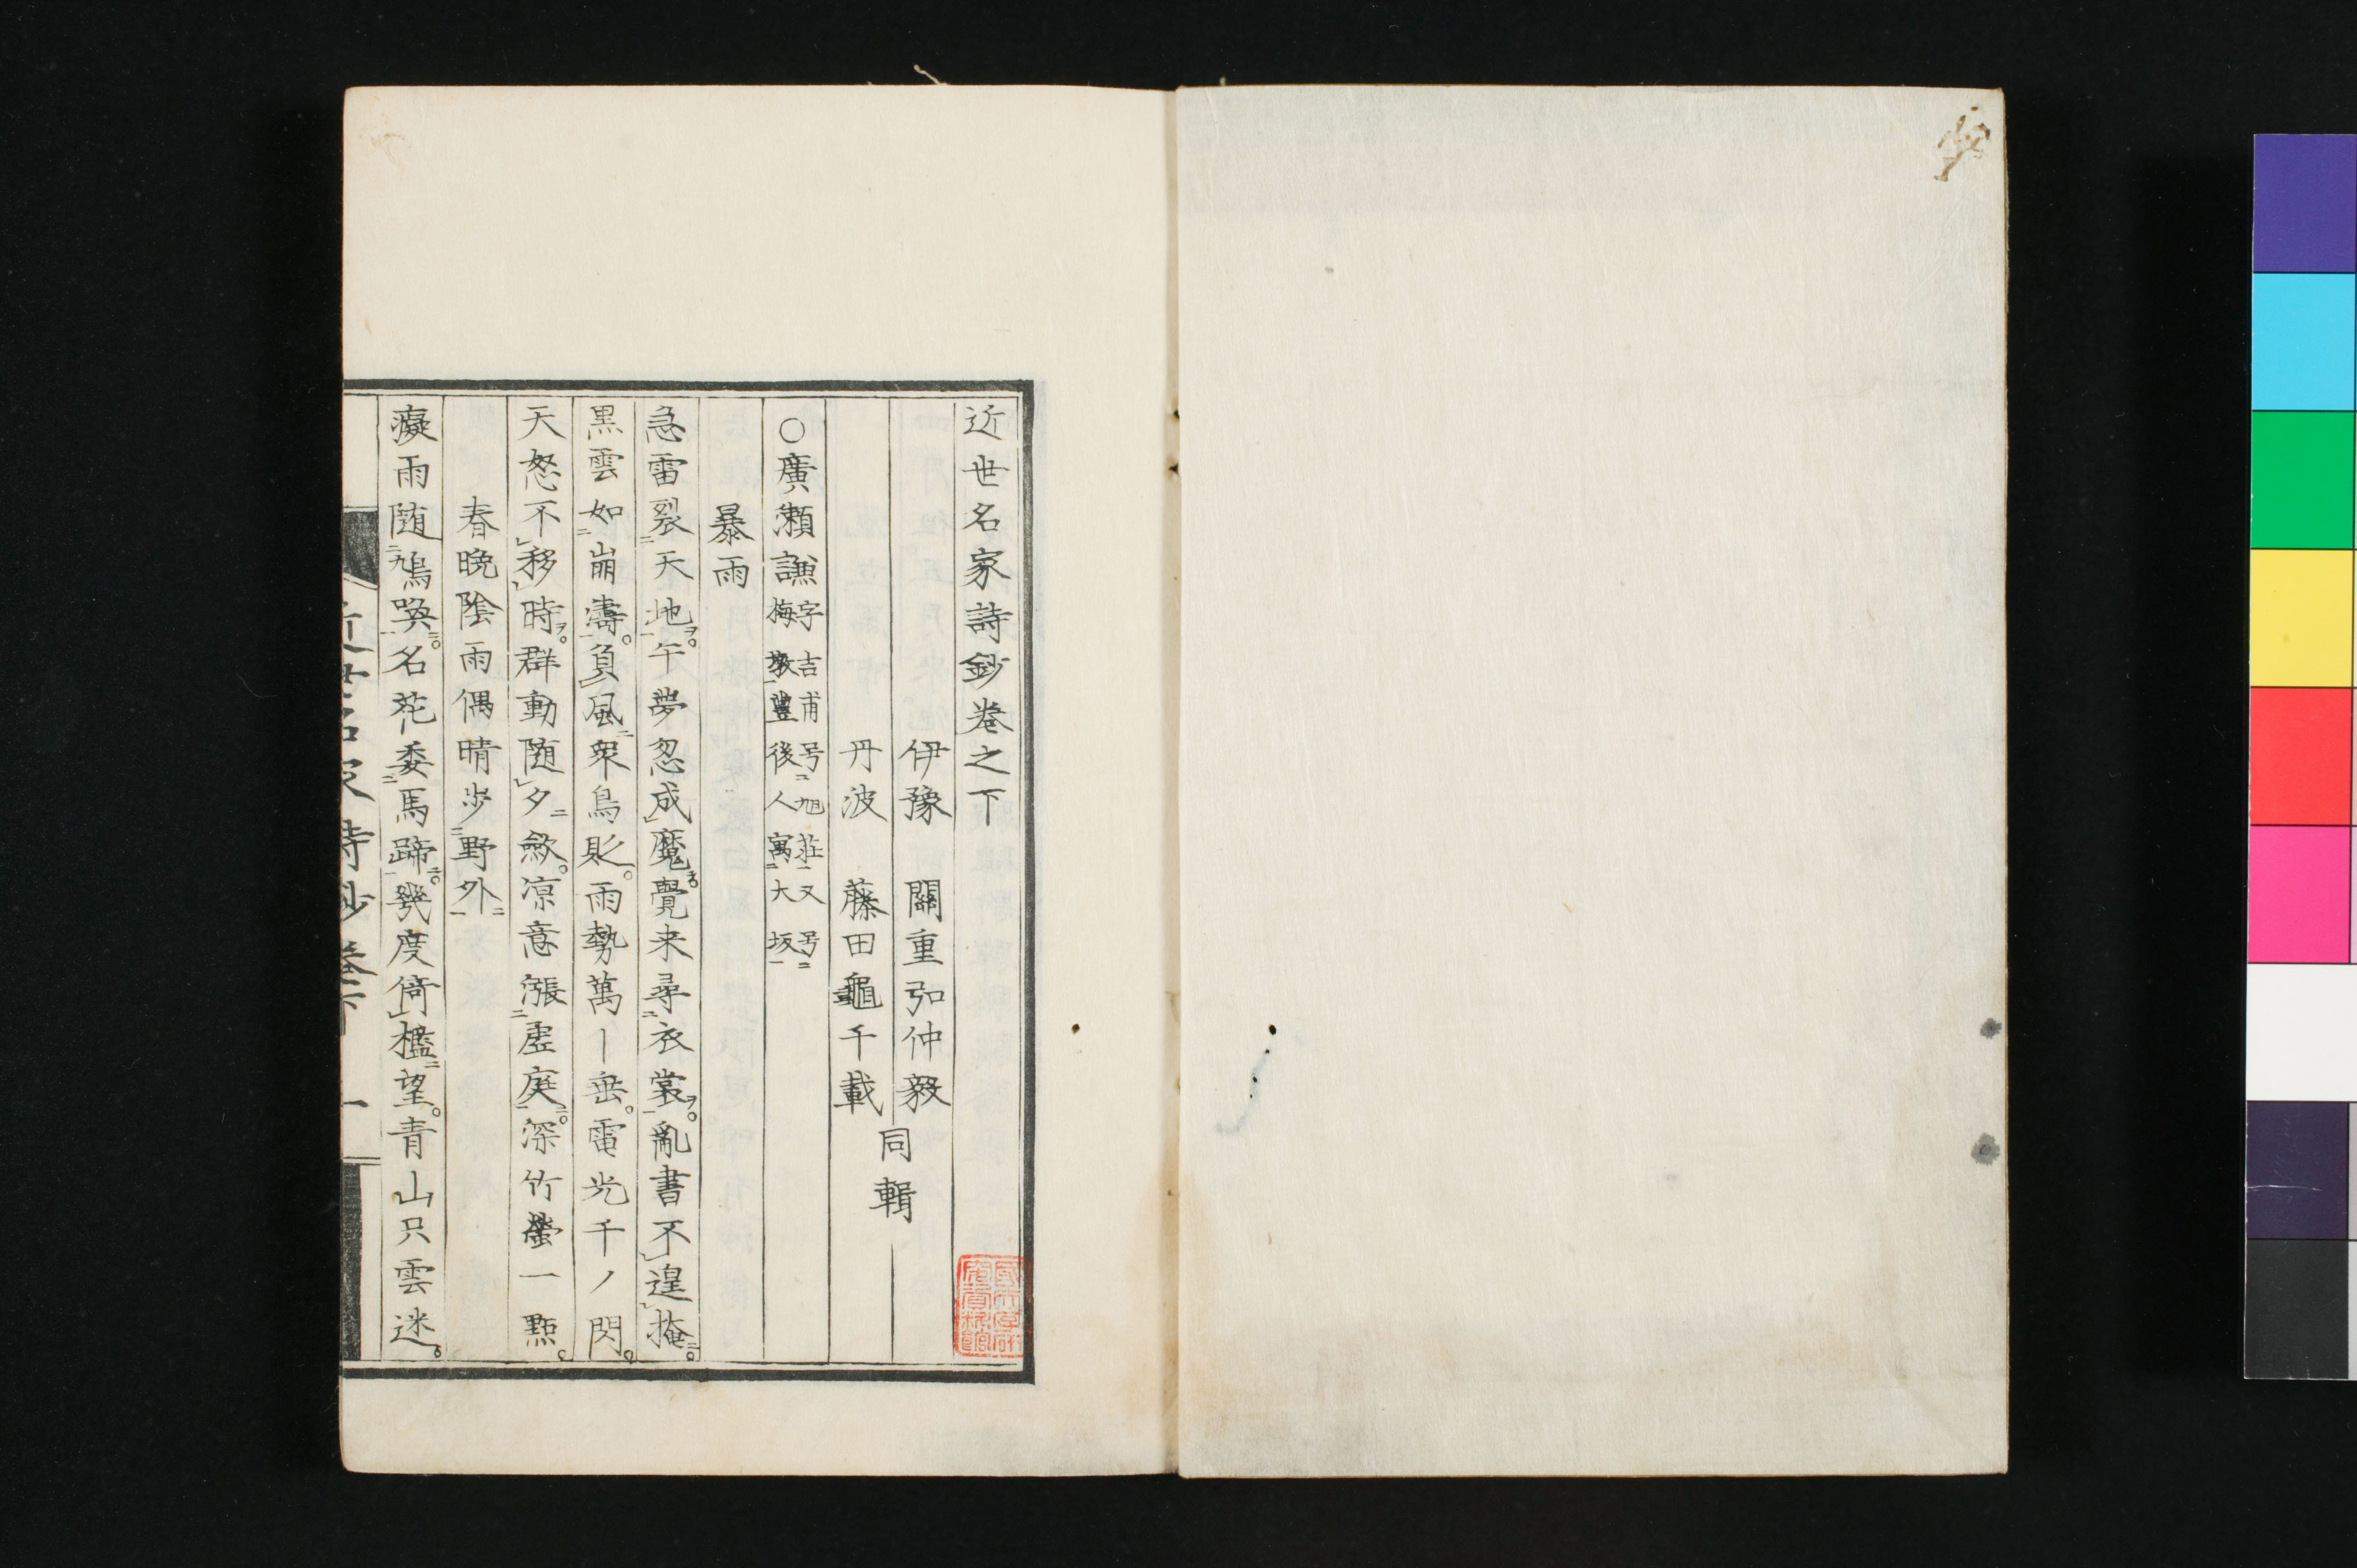 近世名家詩鈔巻之下
伊豫 關重弘仲毅
丹波 藤田龜千載
同輯
○廣瀬謙字吉甫号旭荘又号梅墩豐後人寓大坂
暴雨
急雷裂天地午夢忽成魔覺来尋衣裳亂書不遑掩
黒雲如崩濤負風衆鳥貶雨勢萬丨垂電光千ノ閃
天怒不移時群動随夕斂凉意漲虚庭深竹螢一點
春晩陰雨偶晴歩野外
癡雨随鳩喚名花委馬蹄幾度倚檻望青山只雲迷
近世名家詩鈔巻下 一